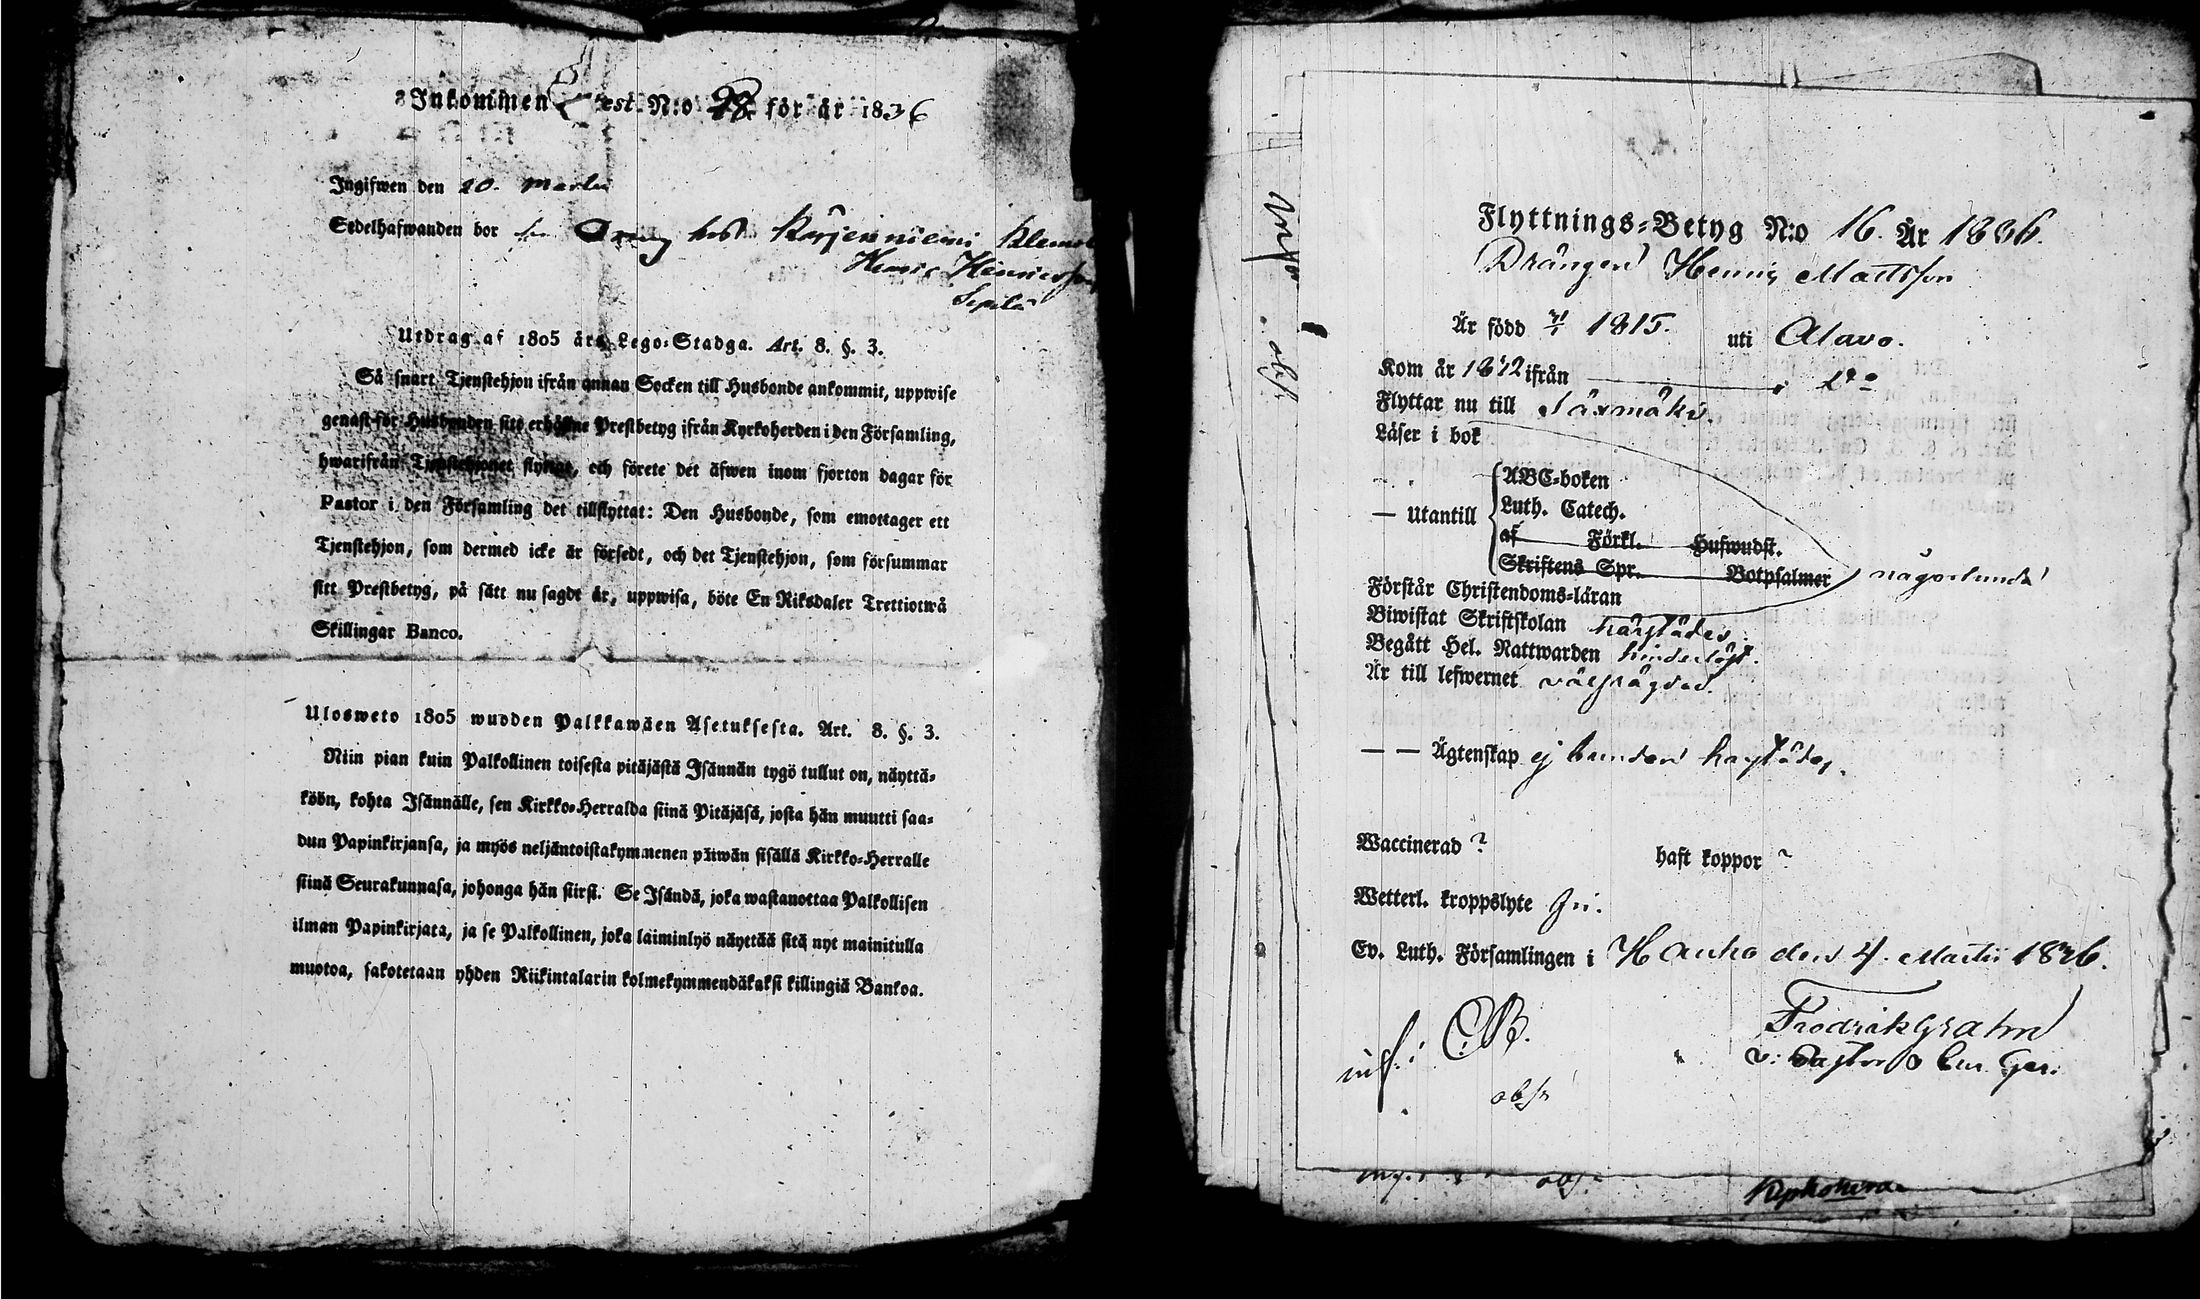 Inkommen Attest N:o 28 för år 1836
Ingifwen den 20. Martii
Sedelhafwanden bor Dräng hos Kärjenniemi
Henric Henricsson
Sipilä
Utdrag af 1805 års Lego-Stadga. Art. 8. §. 3.
Så snart Tjenstehjon ifrån annan Socken till Husbonde ankommit, uppwise
genast för Husbonden sitt erhållne Prestbetyg ifrån Kyrkoherden i den Församling,
hwarifrån Tjenstehjonet flyttat, och förete det äfwen inom fjorton dagar för
Pastor i den Församling det tillflyttat: Den Husbonde, som emottager ett
Tjenstehjon, som dermed icke är försedt, och det Tjenstehjon, som försummar
sitt Prestbetyg, på sätt nu sagdt är, uppwisa, böte En Riksdaler Trettiotwå
Skillingar Banco.
Ulosweto 1805 wuoden Palkkawäen Asetuksesta. Art. 8. §. 3.
Niin pian kuin Palkollinen toisesta pitäjästä Isännän tygö tullut on, näyttä-
köön, kohta Isännälle, sen Kirkko-Herralda siinä Pitäjäsä, josta hän muutti saa-
dun Papinkirjansa, ja myös neljäntoistakymmenen päiwän sisällä Kirkko-Herralle
siinä Seurakunnasa, johonga hän siirsi. Se Isändä, joka wastanottaa Palkollisen
ilman Papinkirjata, ja se Palkollinen, joka laiminlyö näyttää sitä nyt mainitulla
muotoa, sakotetaan yhden Riikintalarin kolmekymmendäkaksi killingiä Bankoa.
Flyttnings-Betyg N:o 16. År 1836.
Drängen Henric Mattsson
Är född 1815. uti Alavo.
Kom år 1832 ifrån d:o
Flyttar nu till Sääxmäki.
Läser i bok
— Utantill
ABC-boken
Luth. Catech.
af Förkl. Hufwudst.
Skriftens Spr. Botpsalmer
någorlunda
Förstår Christendoms-läran
Biwistat Skriftskolan härstädes
Begått Hel. Nattwarden hinderlöst.
Är till lefwernet välfrägdad.
— — Ägtenskap ej bunden härstädes.
Waccinerad ? haft koppor ?
Wetterl. kroppslyte fri.
Ev. Luth. Församlingen i Hauho den 4. Martii 1836.
Fredrik Grahn
v: Pastor
inf: C.B.
obs